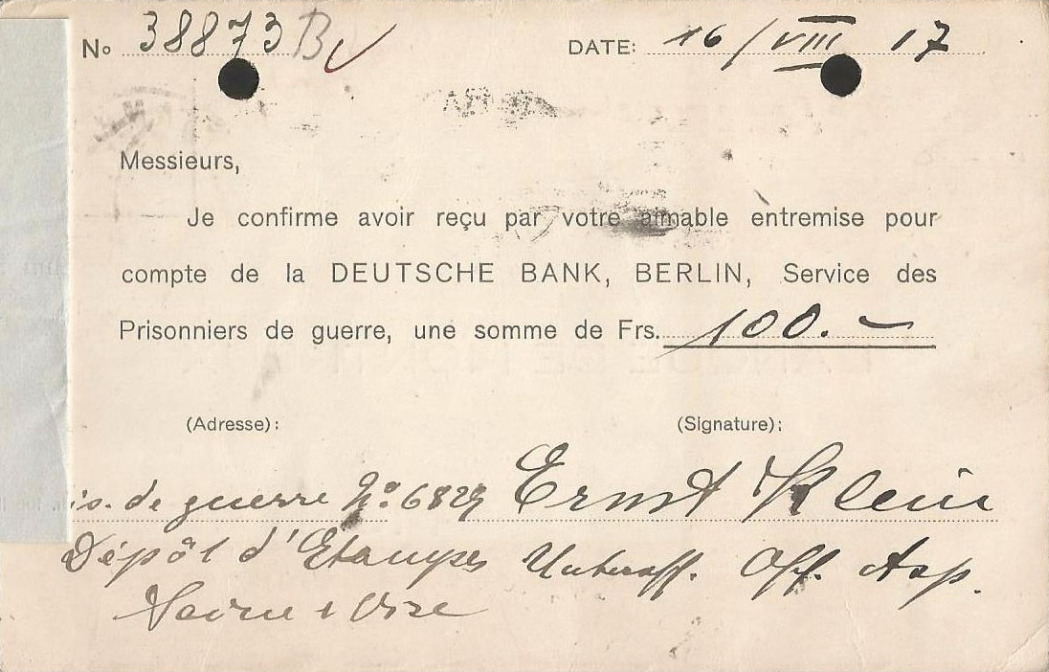 No 38873 B DATE: 16/VIII 17
Messieurs,
Je confirme avoir reçu par votre aimable entremise pour
compte de la DEUTSCHE BANK, BERLIN, Service des
Prisonniers de guerre, une somme de Frs. 100.-
(Adresse): (Signature):
is. de guerre No 6829 Ernst Klein
Dépôt d'Etampes Unteroff. Off. Asp.
Seine & Oise